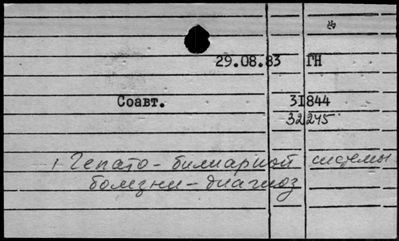 29.08.83 ГН
Соавт. 31844
32245
1 Гепато-билиарной системы
болезни-диагноз